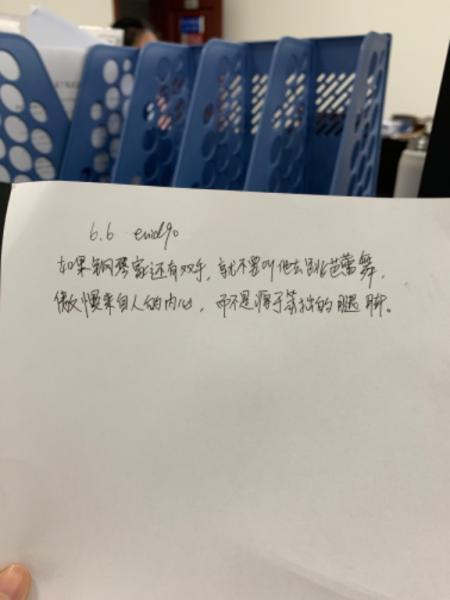 6.6 enid90
如果钢琴家还有双手，就不要叫他去跳芭蕾舞，
傲慢来自人的内心，而不是源于笨拙的腿脚。